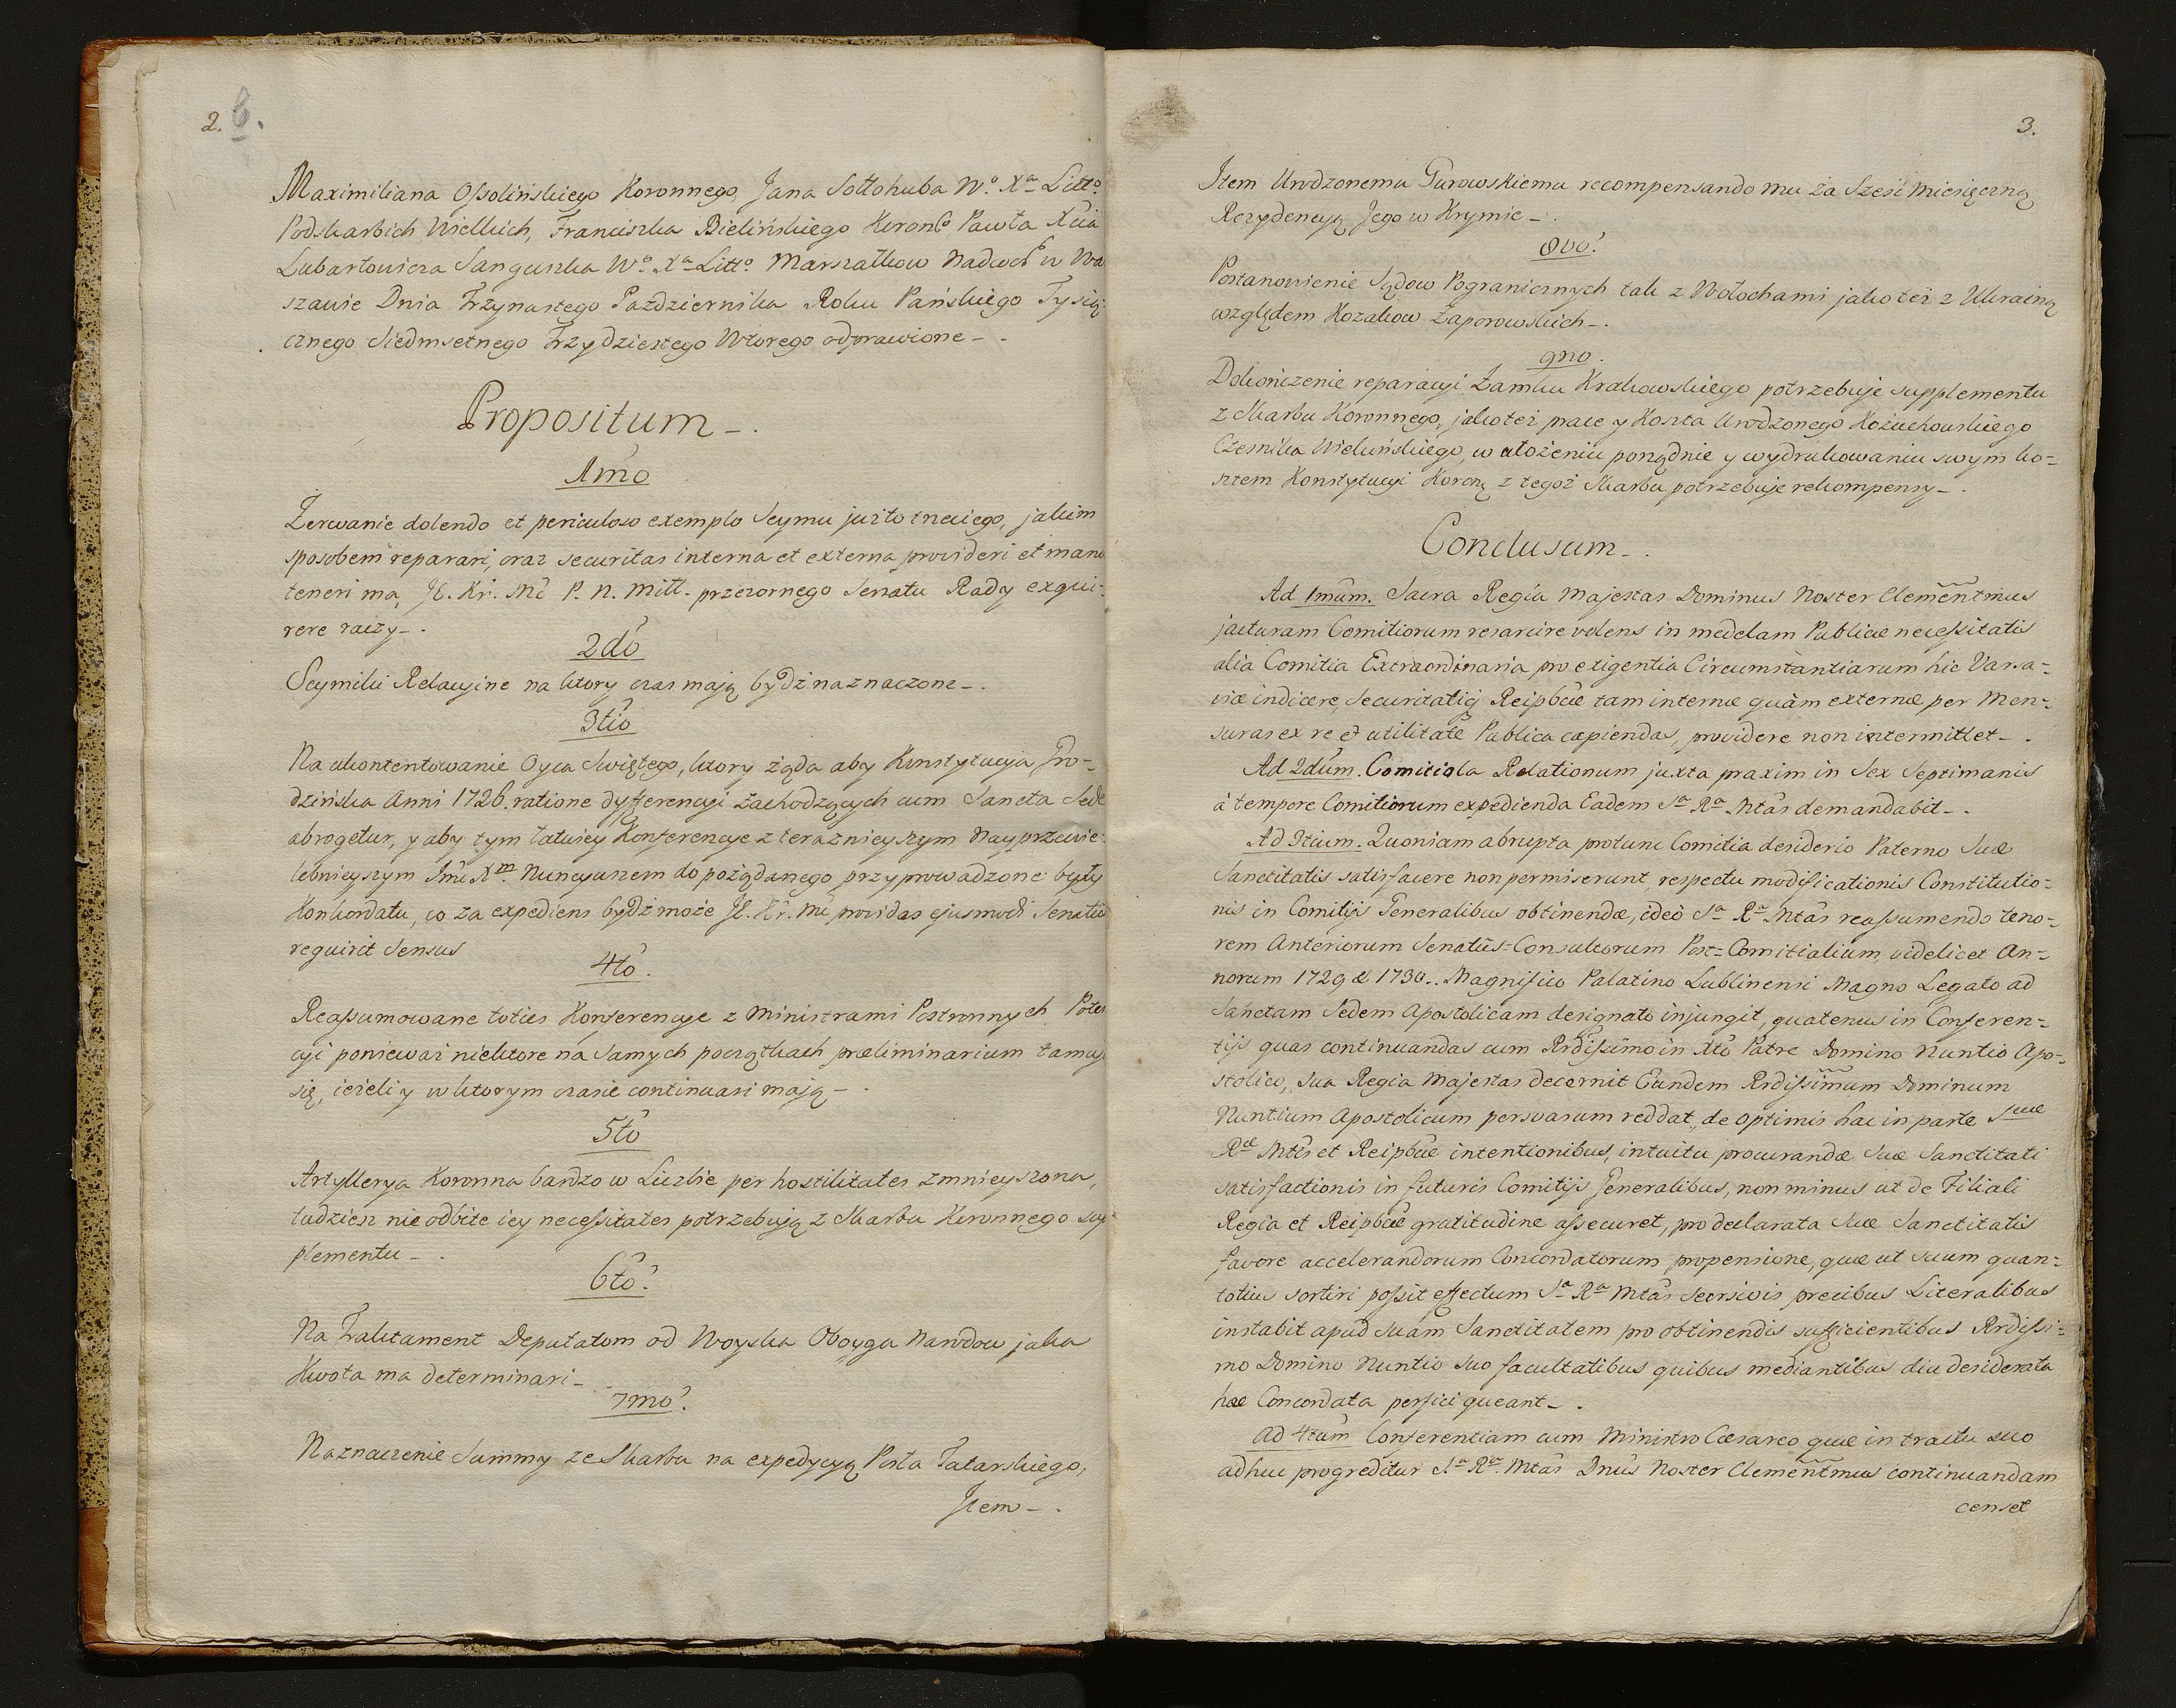 2. b.
Maximiliana Ossolińskiego Koronnego, Jana Sołłohuba Wº. Xª Littº.
Podskarbich Wielkich, Franciszka Bielińskiego Koronº Pawła Xcia
Lubartowicza Sanguszka Wº. Xª Littº. Marszałkow Nadwoʳ. w Wa
szawie Dnia Trzynastego Pazdziernika Roku Pańskiego Tysią
cznego Siedmsetnego Trzydziestego Wtorego odprawione_.
Propositum_.
1mo
Zerwanie dolendo et periculoso exemplo Seymu już to trzeciego, jakim
sposobem reparari, oraz securitas interna et externa provideri et manu
teneri ma, Jª. Kr. Mć P. n. Mitt. przezornego Senatu Rady exqui-
rere raczy_.
2do
Seymiki Relacyine na ktory czas mają bydź naznaczone_.
3tio
Na ukontentowanie Oyca Swiętego, ktory żąda aby Konstytucya Gro-
dzińska Anni 1726. ratione dyfferencyi zachodzących cum Sancta Sede
abrogetur, y aby tym łatwiey Konferencye z teraznieyszym Nayprzewie-
lebnieyszym Jmć Xᵐ. Nuncyuszem do pożądanego przyprowadzone były
Konkordatu, co za expediens bydź może Jª. Kr. Mć providas ejusmodi Senatûs
requirit Sensus
4to.
Reassumowane toties Konferencye z Ministrami Postronnych Poten
cyi ponieważ niektore na samych początkach præliminarium tamują
się, ieżeli y w ktorym czasie continuari mają_.
5to
Artyllerya Koronna bardzo w Liczbie per hostilitates zmnieyszona,
tudziesz nie odbite iey necessitates potrzebują z Skarbu Koronnego sup-
plementu_.
6to.
Na Traktament Deputatom od Woyska Oboyga Narodow jaka
Kwota ma determinari_
7mo.
Naznaczenie Summy ze Skarbu na expedycyą Posła Tatarskiego,
Item_.
3.
Item Urodzonemu Gurowskiemu recompensando mu za Sześć miesięczną
Rezydencyą Jego w Krymie_.
8vo.
Postanowienie Sądow Pogranicznych tak z Wołochami jako też z Ukrainą
względem Kozakow Zaporowskich_.
9no.
Dokończenie reparacyi Zamku Krakowskiego potrzebuje supplementu
z Skarbu Koronnego, jako też prace y Koszta Urodzonego Kożuchowskiego
Czesnika Wieluńskiego, w ułożeniu porządnie y wydrukowaniu swym ko-
sztem Konstytucyi Koroną z tegoż Skarbu potrzebuje rekompensy_.
Conclusum_.
Ad 1mum. Sacra Regia Majestas Dominus Noster Clementmus
jacturam Comitiorum resarcire volens in medelam Publicæ necessitatis
alia Comitia Extraordinaria pro exigentia Circumstantiarum hic Varsa-
viæ indicere, Securitatiq Reipbcæ tam internæ quàm externæ per Men-
suras ex re et utilitate Publica capiendas, providere non intermittet_.
Ad 2dum. Comitiola Relationum juxta praxim in Sex Septimanis
à tempore Comitiorum expedienda Eadem Sª Rª Mtas demandabit_.
Ad 3tium. Quoniam abrupta protunc Comitia desiderio Paterno Suæ
Sanctitatis satisfacere non permiserunt, respectu modificationis Constitutio-
nis in Comitijs Generalibus obtinendæ, ideò Sª Rª Mtas reassumendo teno-
rem Anteriorum Senatûs=Consultorum Post=Comitialium, videlicet An-
norum 1729 & 1730.. Magnifico Palatino Lublinensi Magno Legato ad
Sanctam Sedem Apostolicam designato injungit, quatenus in Conferen-
tijs quas continuandas cum Rrdissimo in Xto Patre Domino Nuntio Apo-
stolico, Sua Regia Majestas decernit Eundem Rrdissimum Dominum
Nuntium Apostolicum persvasum reddat, de optimis hac in parte Suæ
Ræ Mtis et Reipbcæ intentionibus, intuitu procurandæ Suæ Sanctitati
satisfactionis in futuris Comitijs Generalibus, non minus ut de Filiali
Regia et Reipbcæ gratitudine assecuret, pro declarata Suæ Sanctitatis
favore accelerandorum Concordatorum propensione, quæ ut suum quan-
totius sortiri possit effectum Sª Rª Mtas seorsivis precibus Literalibus
instabit apud Suam Sanctitatem pro obtinendis sufficientibus Rrdissi-
mo Domino Nuntio Suo facultatibus quibus mediantibus diu desiderata
hæc Concordata perfici queant_.
Ad 4tum Conferentiam cum Ministro Cæsareo quæ in tractu suo
adhuc progreditur Sª Rª. Mtas Dnus Noster Clementmus continuandam
censet